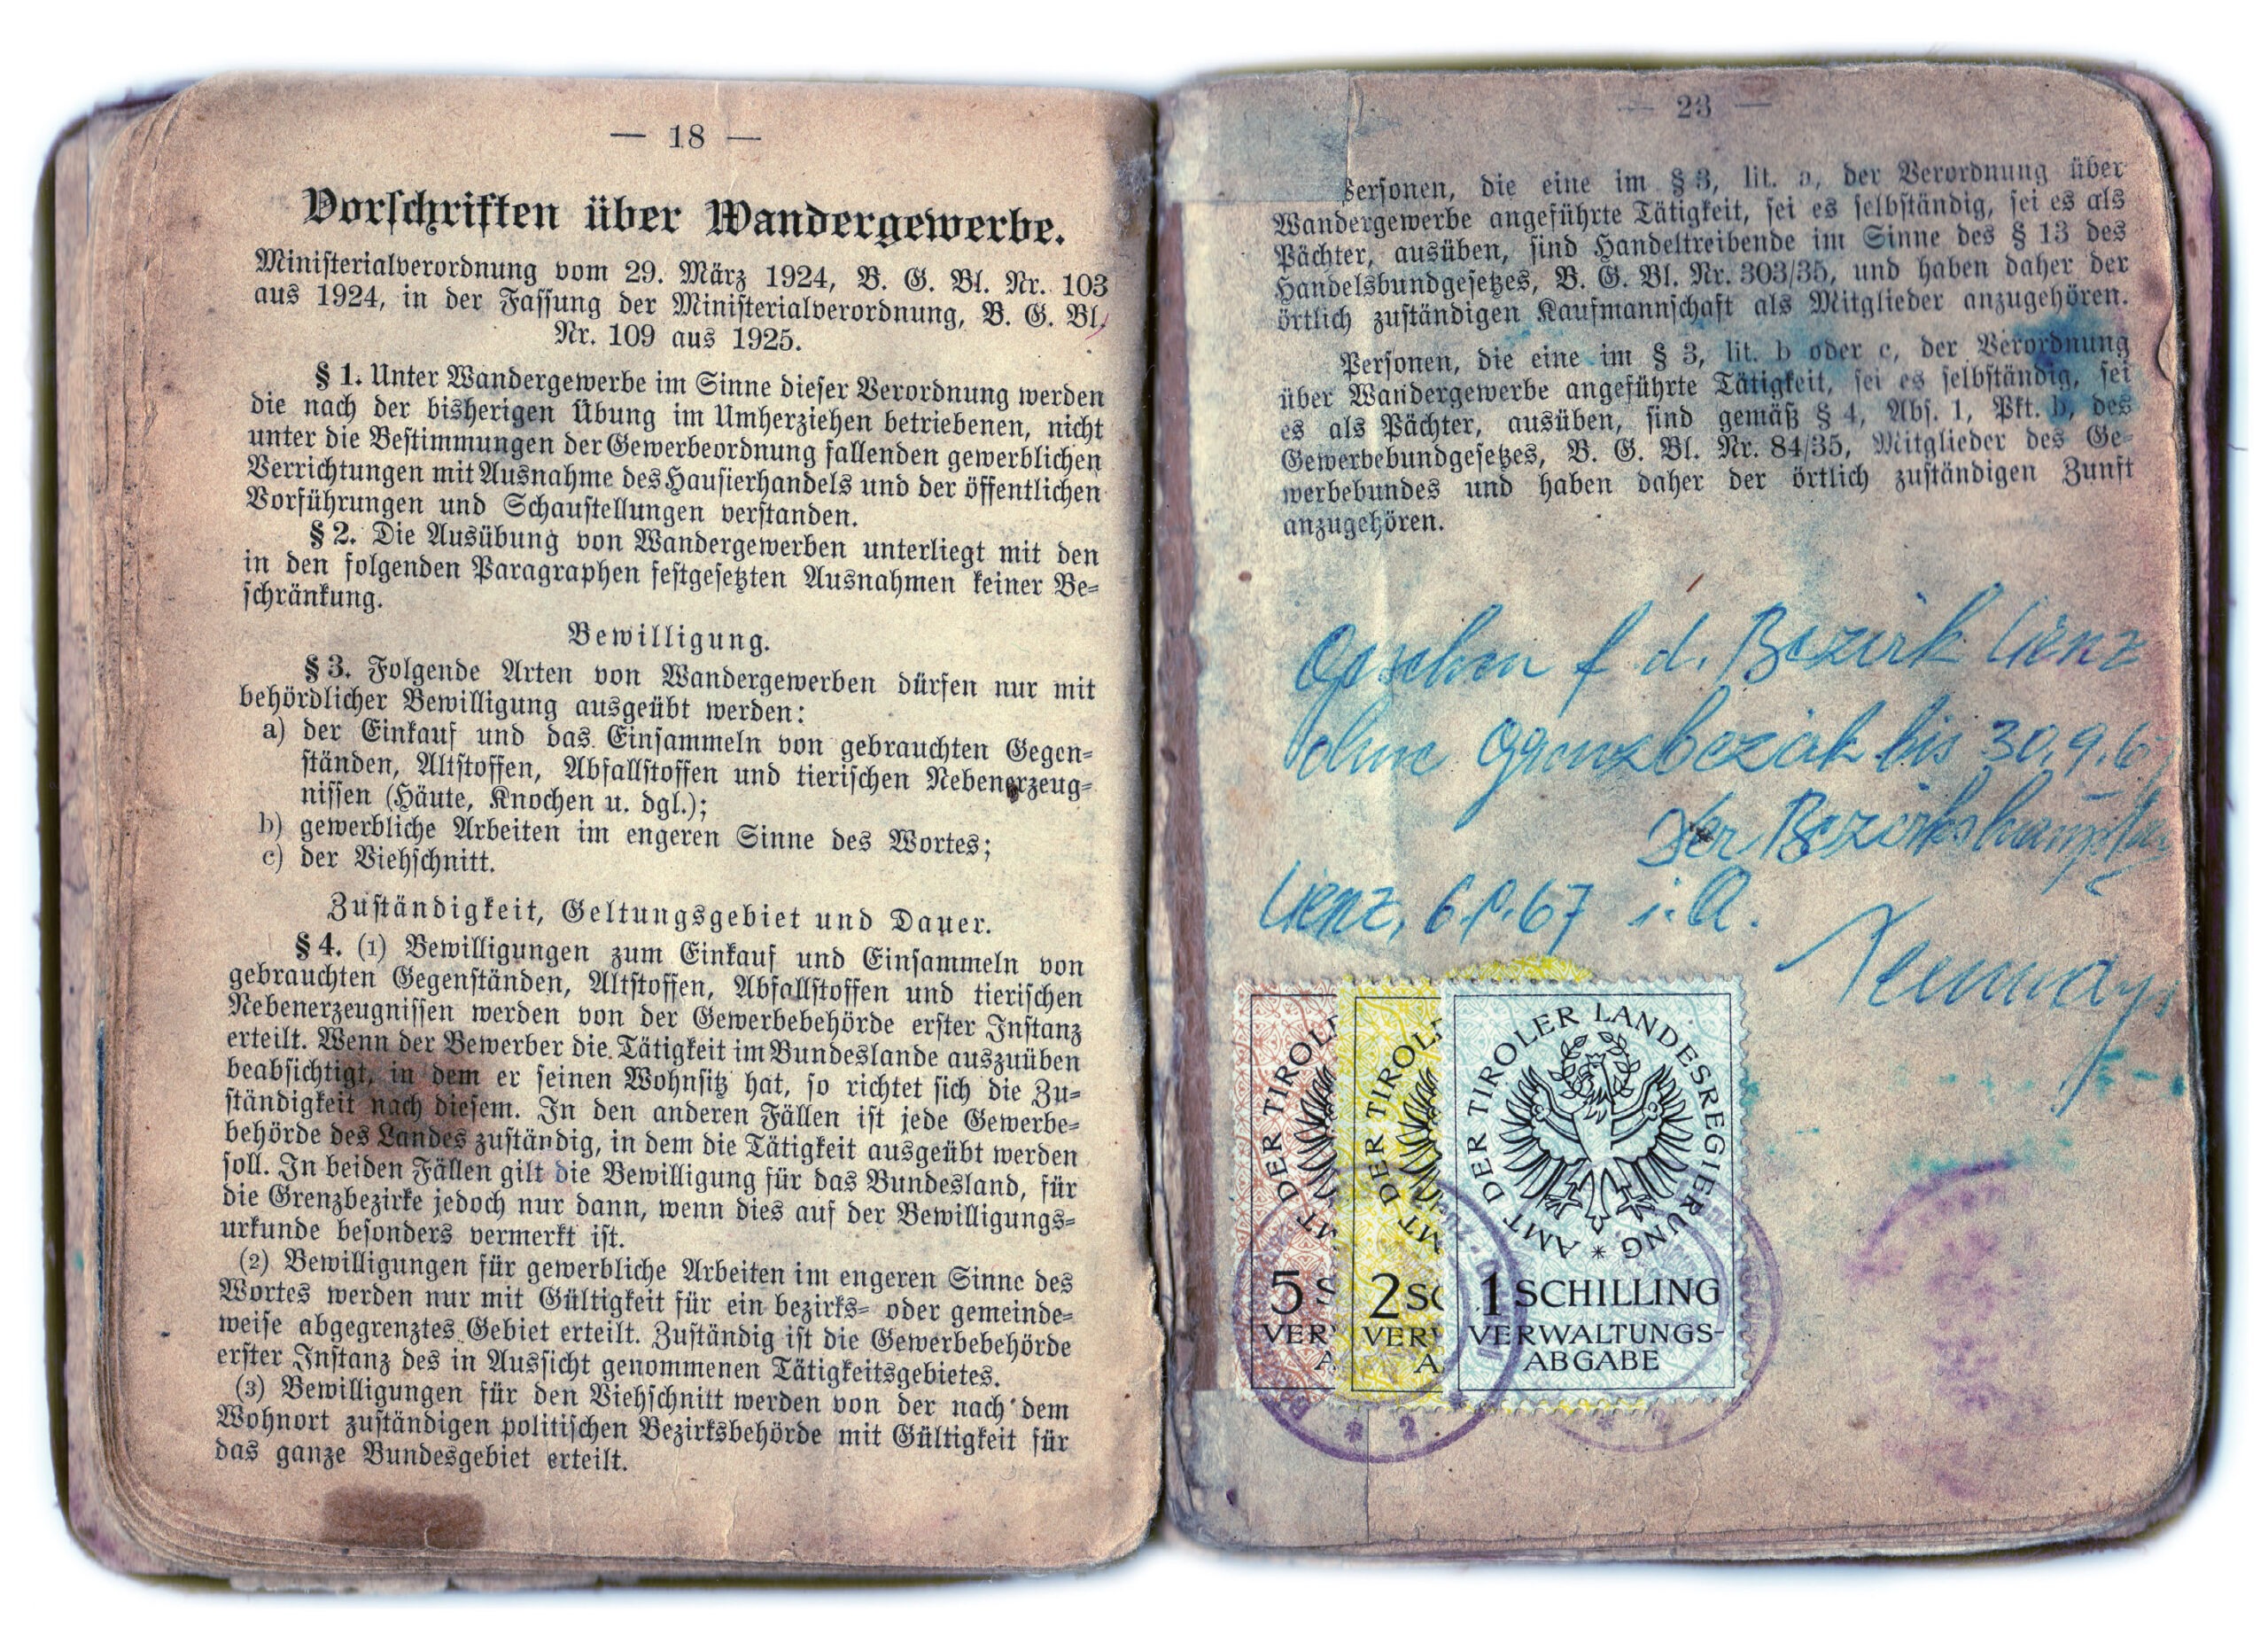 — 18 —
Vorschriften über Wandergewerbe.
Ministerialverordnung vom 29. März 1924, B. G. Bl. Nr. 103
aus 1924, in der Fassung der Ministerialverordnung, B. G. Bl.
Nr. 109 aus 1925.
§ 1. Unter Wandergewerbe im Sinne dieser Verordnung werden
die nach der bisherigen Übung im Umherziehen betriebenen, nicht
unter die Bestimmungen der Gewerbeordnung fallenden gewerblichen
Verrichtungen mit Ausnahme des Hausierhandels und der öffentlichen
Vorführungen und Schaustellungen verstanden.
§ 2. Die Ausübung von Wandergewerben unterliegt mit den
in den folgenden Paragraphen festgesetzten Ausnahmen keiner Be-
schränkung.
Bewilligung.
§ 3. Folgende Arten von Wandergewerben dürfen nur mit
behördlicher Bewilligung ausgeübt werden:
a) der Einkauf und das Einsammeln von gebrauchten Gegen-
ständen, Altstoffen, Abfallstoffen und tierischen Nebenerzeug-
nissen (Häute, Knochen u. dgl.);
b) gewerbliche Arbeiten im engeren Sinne des Wortes;
c) der Viehschnitt.
Zuständigkeit, Geltungsgebiet und Dauer.
§ 4. (1) Bewilligungen zum Einkauf und Einsammeln von
gebrauchten Gegenständen, Altstoffen, Abfallstoffen und tierischen
Nebenerzeugnissen werden von der Gewerbebehörde erster Instanz
erteilt. Wenn der Bewerber die Tätigkeit im Bundeslande auszuüben
beabsichtigt, in dem er seinen Wohnsitz hat, so richtet sich die Zu-
ständigkeit nach diesem. In den anderen Fällen ist jede Gewerbe-
behörde des Landes zuständig, in dem die Tätigkeit ausgeübt werden
soll. In beiden Fällen gilt die Bewilligung für das Bundesland, für
die Grenzbezirke jedoch nur dann, wenn dies auf der Bewilligungs-
urkunde besonders vermerkt ist.
(2) Bewilligungen für gewerbliche Arbeiten im engeren Sinne des
Wortes werden nur mit Gültigkeit für ein bezirks- oder gemeinde-
weise abgegrenztes Gebiet erteilt. Zuständig ist die Gewerbebehörde
erster Instanz des in Aussicht genommenen Tätigkeitsgebietes.
(3) Bewilligungen für den Viehschnitt werden von der nach dem
Wohnort zuständigen politischen Bezirksbehörde mit Gültigkeit für
das ganze Bundesgebiet erteilt.
— 23 —
Personen, die eine im § 3, lit. a, der Verordnung über
Wandergewerbe angeführte Tätigkeit, sei es selbständig, sei es als
Pächter, ausüben, sind Handeltreibende im Sinne des § 13 des
Handelsbundgesetzes, B. G. Bl. Nr. 303/35, und haben daher der
örtlich zuständigen Kaufmannschaft als Mitglieder anzugehören.
Personen, die eine im § 3, lit. b oder c, der Verordnung
über Wandergewerbe angeführte Tätigkeit, sei es selbständig, sei
es als Pächter, ausüben, sind gemäß § 4, Abs. 1, Pkt. b, des
Gewerbebundgesetzes, B. G. Bl. Nr. 84/35, Mitglieder des Ge-
werbebundes und haben daher der örtlich zuständigen Zunft
anzugehören.
Gesehen f. d. Bezirk Lienz
ohne Grenzbezirk bis 30.9.6
Der Bezirkshauptm
Lienz, 67 i. A.
DER TIROL
5 S
VER
A
DER TIROL
2 SC
VER
A
AMT DER TIROLER LANDESREGIERUNG *
1 SCHILLING
VERWALTUNGS-
ABGABE